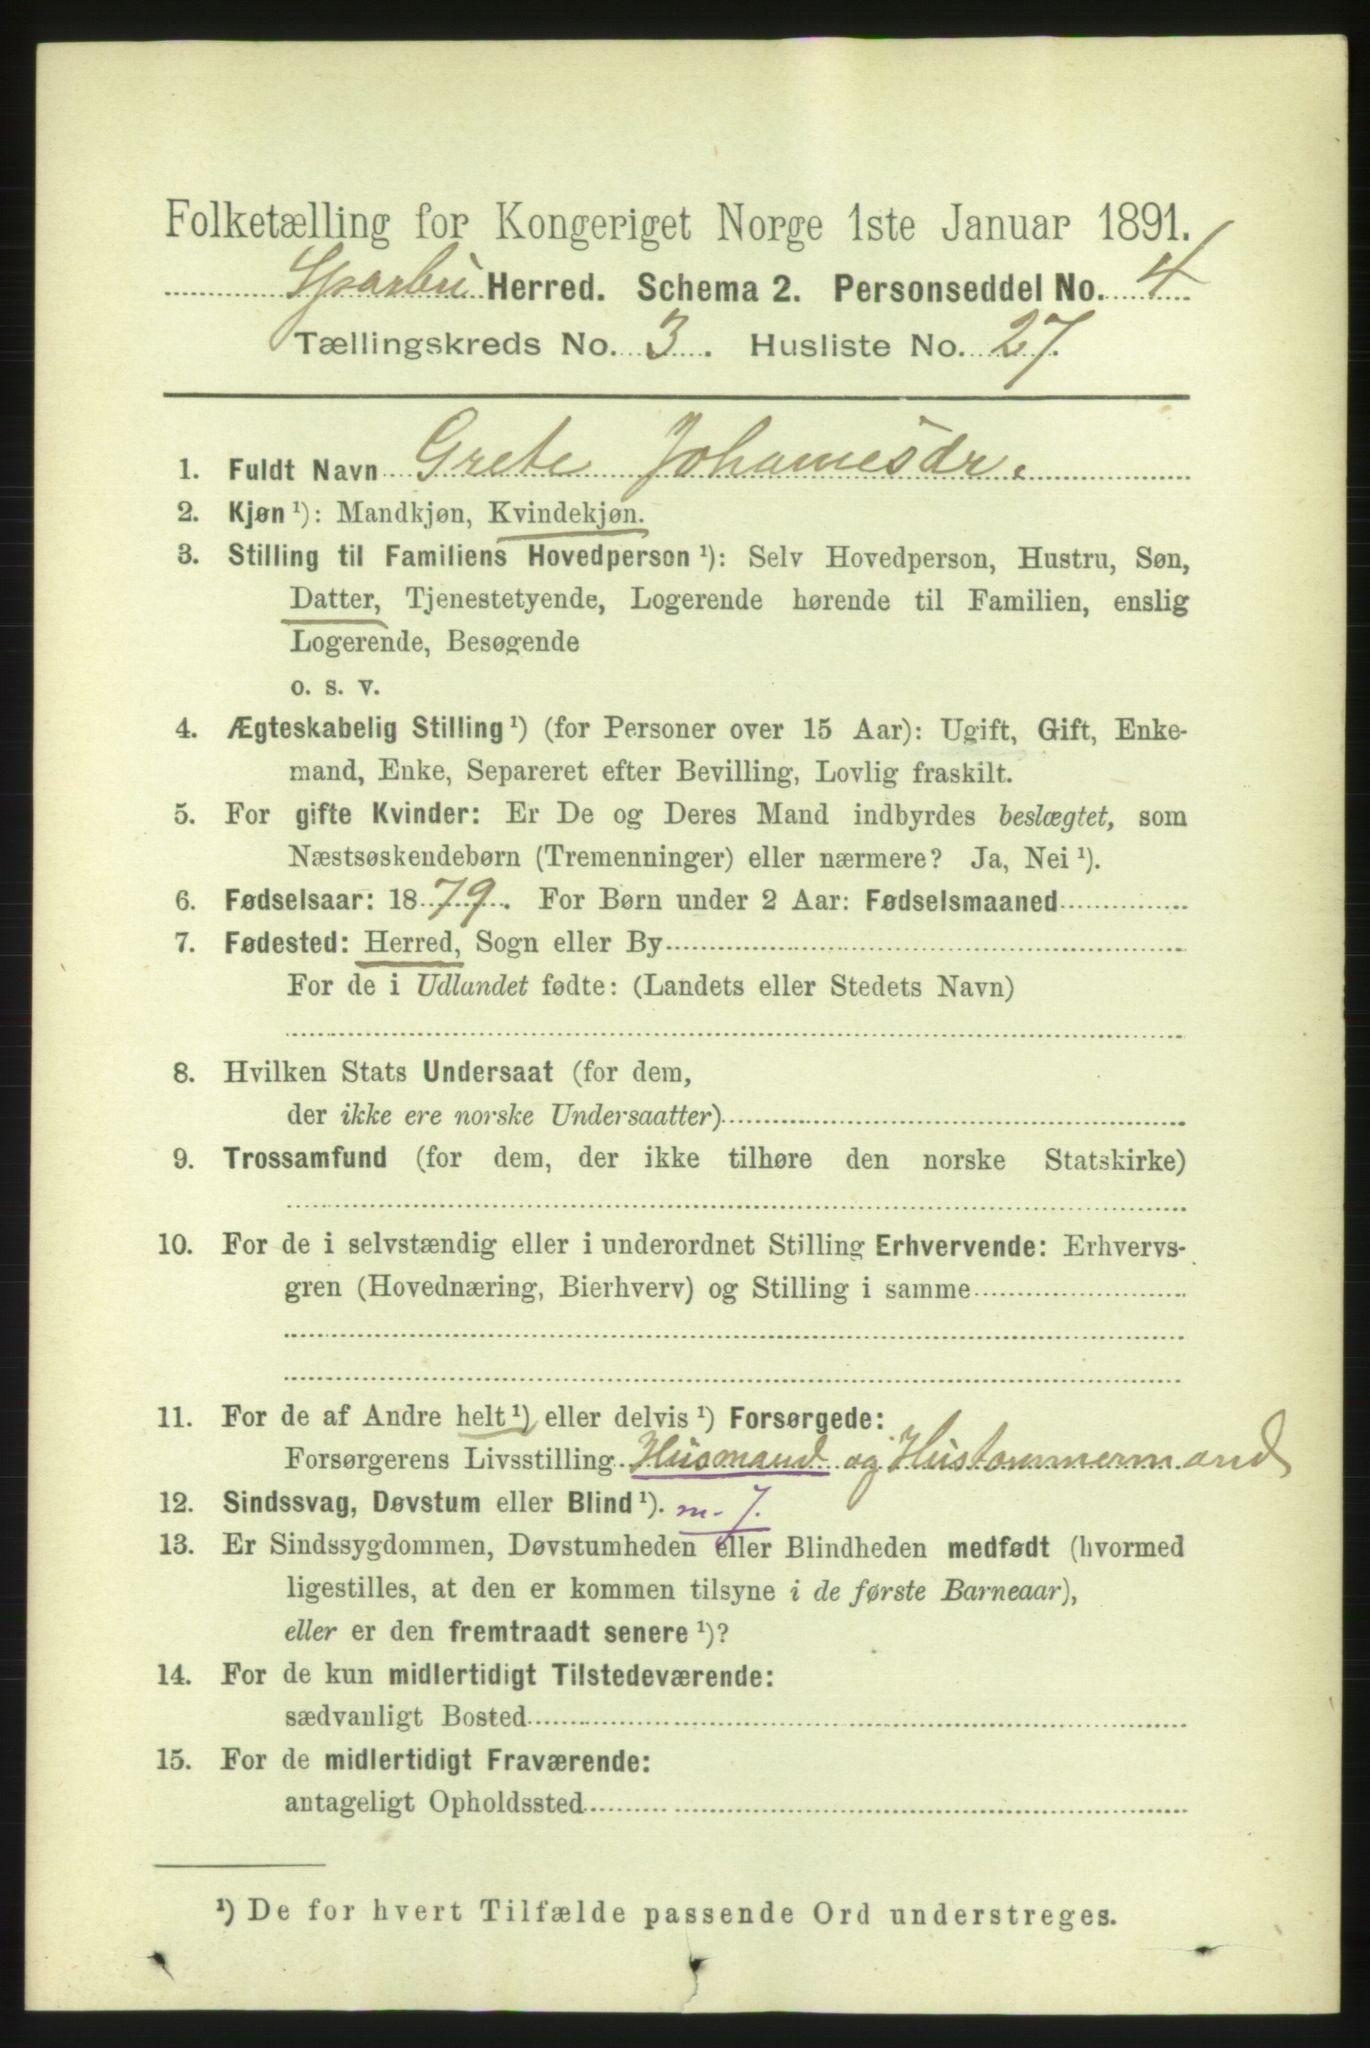 Folketælling for Kongeriget Norge 1ste Januar 1891.
Sparbu Herred. Schema 2. Personseddel No. 4
Tællingskreds No. 3. Husliste No. 27.
1. Fuldt Navn Grete Johanesdr.
2. Kjøn ¹): Mandkjøn, Kvindekjøn.
3. Stilling til Familiens Hovedperson ¹): Selv Hovedperson, Hustru, Søn,
Datter, Tjenestetyende, Logerende hørende til Familien, enslig
Logerende, Besøgende
o. s. v.
4. Ægteskabelig Stilling ¹) (for Personer over 15 Aar): Ugift, Gift, Enke-
mand, Enke, Separeret efter Bevilling, Lovlig fraskilt.
5. For gifte Kvinder: Er De og Deres Mand indbyrdes beslægtet, som
Næstsøskendebørn (Tremenninger) eller nærmere? Ja, Nei ¹).
6. Fødselsaar: 1879. For Børn under 2 Aar: Fødselsmaaned
7. Fødested: Herred, Sogn eller By
For de i Udlandet fødte: (Landets eller Stedets Navn)
8. Hvilken Stats Undersaat (for dem,
der ikke ere norske Undersaatter)
9. Trossamfund (for dem, der ikke tilhøre den norske Statskirke)
10. For de i selvstændig eller i underordnet Stilling Erhvervende: Erhvervs-
gren (Hovednæring, Bierhverv) og Stilling i samme
11. For de af Andre helt ¹) eller delvis ¹) Forsørgede:
Forsørgerens Livsstilling Husmand og Hustømmermand
12. Sindssvag, Døvstum eller Blind ¹). m. 7.
13. Er Sindssygdommen, Døvstumheden eller Blindheden medfødt (hvormed
ligestilles, at den er kommen tilsyne i de første Barneaar),
eller er den fremtraadt senere ¹)?
14. For de kun midlertidigt Tilstedeværende:
sædvanligt Bosted
15. For de midlertidigt Fraværende:
antageligt Opholdssted
¹) De for hvert Tilfælde passende Ord understreges.